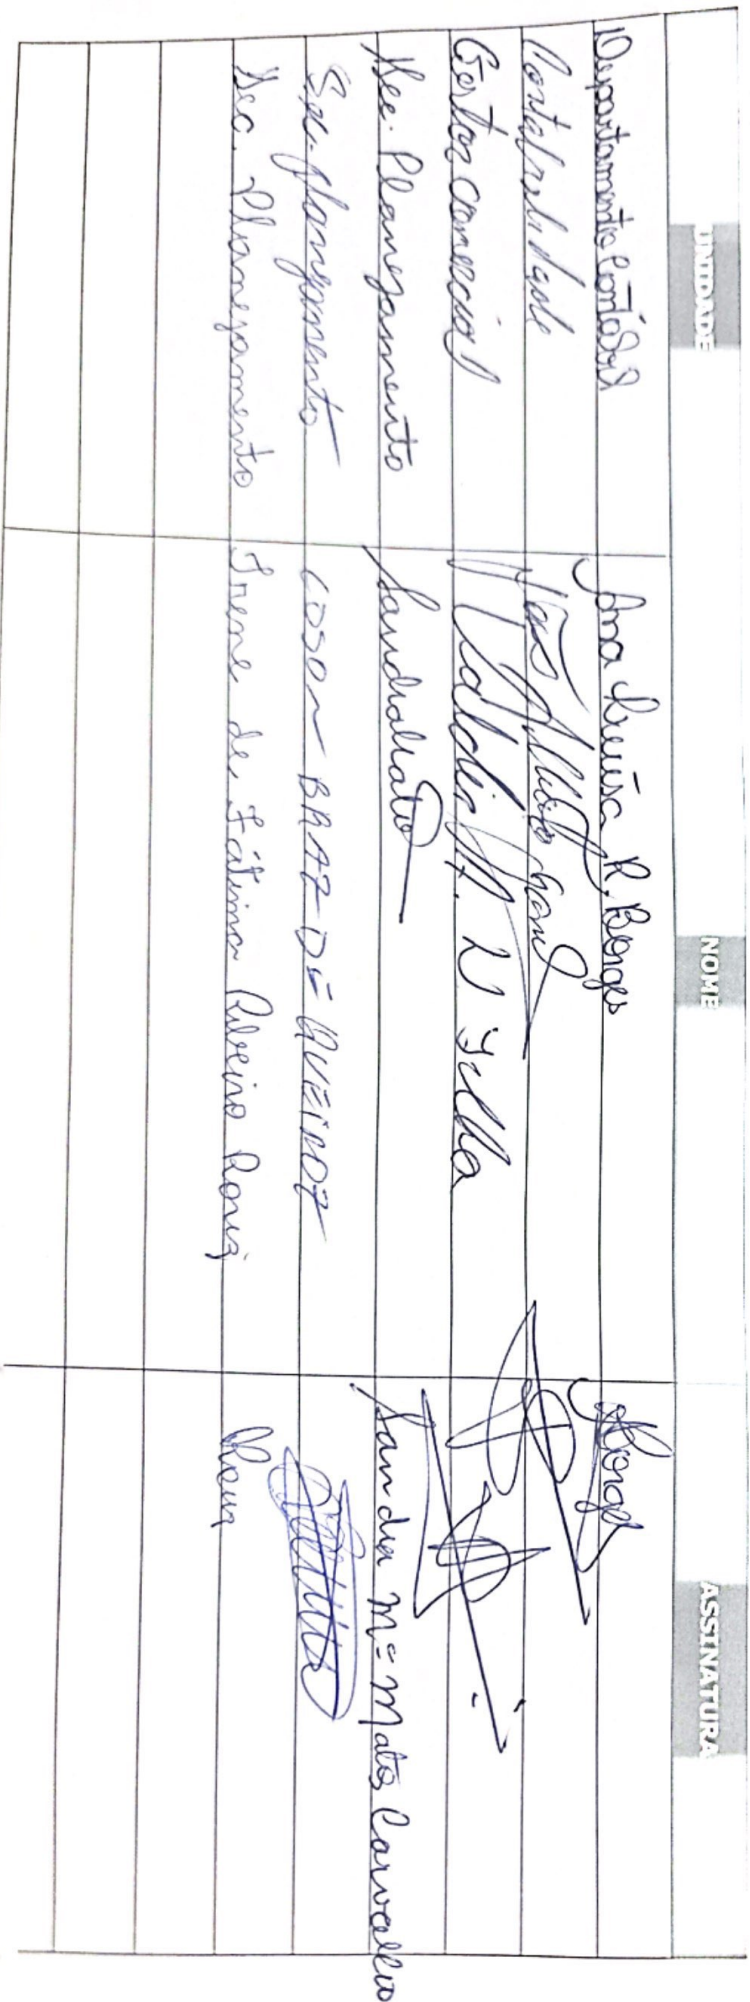 UNIDADE NOME ASSINATURA
Departamento Contábil Ana Creusa R. Borges Borges
Contabilidade João Alberto
Gestor comercial Valdir
Sec. Planejamento Sandra Matos Sandra Mª Matos Carvalho
Sec. planejamento BRAZ DE QUEIROZ
Sec. Planejamento Irene de Fátima Ribeiro Roriz